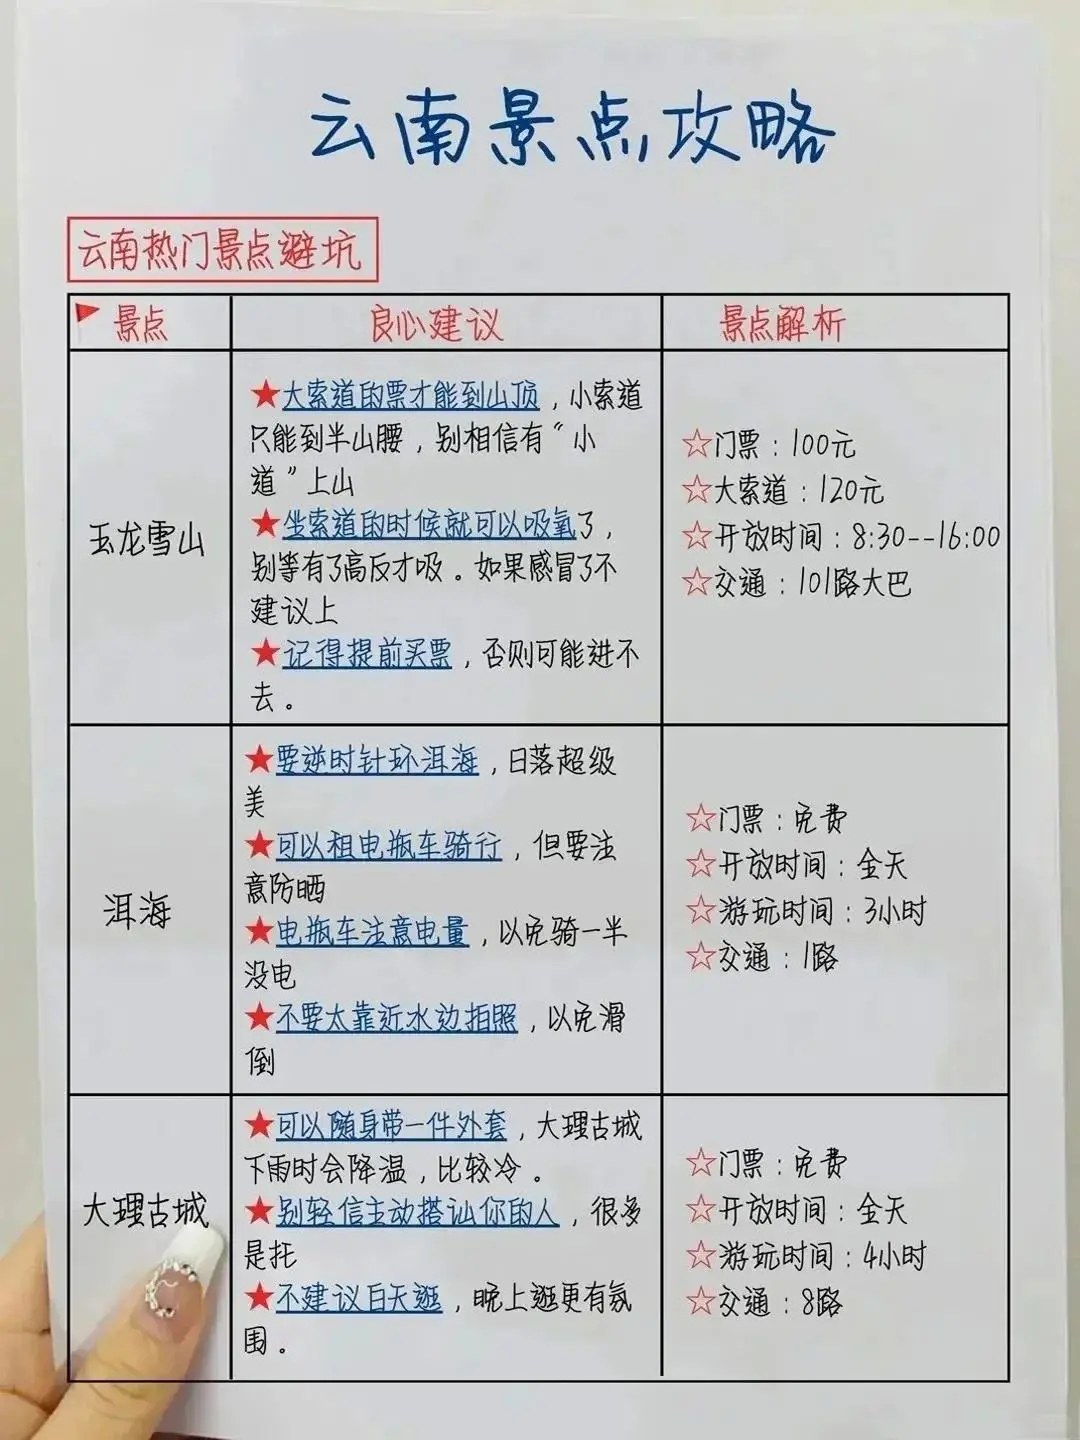 云南景点攻略
云南热门景点避坑
景点
良心建议
景点解析
玉龙雪山
★大索道的票才能到山顶，小索道
只能到半山腰，别相信有“小
道”上山
★坐索道的时候就可以吸氧了，
别等有了高反才吸。如果感冒了不
建议上
★记得提前买票，否则可能进不
去。
☆门票：100元
☆大索道：120元
☆开放时间：8:30--16:00
☆交通：101路大巴
洱海
★要逆时针环洱海，日落超级
美
★可以租电瓶车骑行，但要注
意防晒
★电瓶车注意电量，以免骑一半
没电
★不要太靠近水边拍照，以免滑
倒
☆门票：免费
☆开放时间：全天
☆游玩时间：3小时
☆交通：1路
大理古城
★可以随身带一件外套，大理古城
下雨时会降温，比较冷。
★别轻信主动搭讪你的人，很多
是托
★不建议白天逛，晚上逛更有氛
围。
☆门票：免费
☆开放时间：全天
☆游玩时间：4小时
☆交通：8路